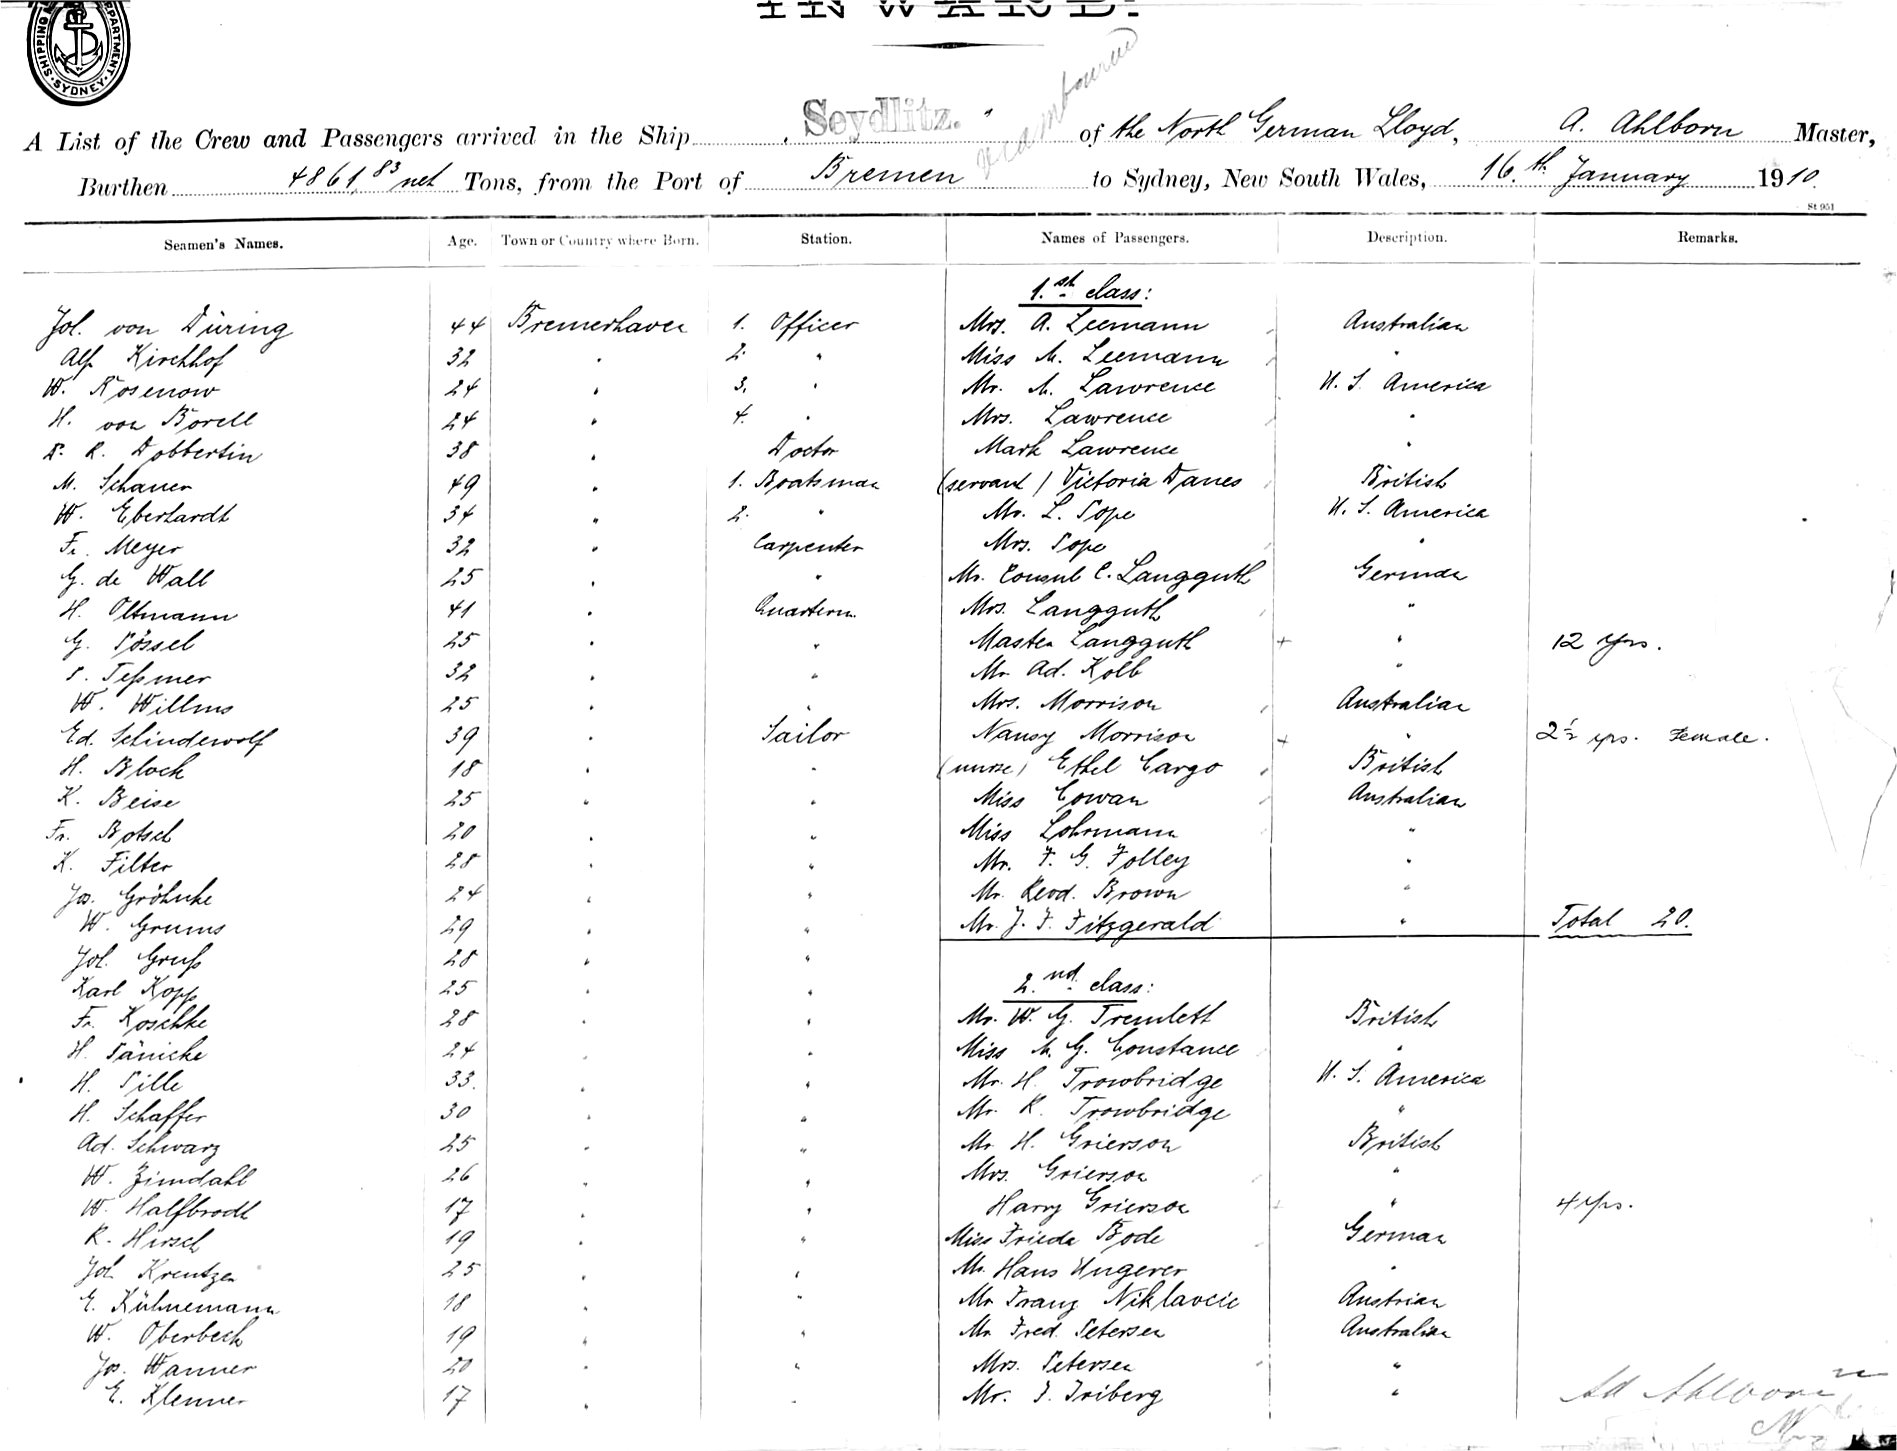 INWARD.
SHIPPING DEPARTMENT · SYDNEY ·
A List of the Crew and Passengers arrived in the Ship „ Seydlitz. " of the North German Lloyd, A. Ahlborn Master,
Burthen 4861,83 net Tons, from the Port of Bremen via Melbourne to Sydney, New South Wales, 16.th January 1910.
St 951
Seamen's Names. Age. Town or Country where Born. Station. Names of Passengers. Description. Remarks.
1.st class:
Joh. von Düring 44 Bremerhaven 1. Officer Mrs. A. Leemann Australian
Alf. Kirchhof 32 " 2. " Miss M. Leemann "
W. Rosenow 24 " 3. " Mr. M. Lawrence U. S. America
H. von Borell 24 " 4. " Mrs. Lawrence "
D. R. Dobbertin 38 " Doctor Mark Lawrence "
M. Schauer 49 " 1. Boatsman (servant) Victoria Danes British
W. Eberhardt 34 " 2. " Mr. L. Pope U. S. America
Fr. Meyer 32 " Carpenter Mrs. Pope "
G. de Wall 25 " " Mr. Consul C. Langguth German
H. Oltmann 41 " Quarterm. Mrs. Langguth "
G. Pössel 25 " " Master Langguth + " 12 yrs.
P. Teßmer 32 " " Mr. Ad. Kolb "
W. Willms 25 " " Mrs. Morrison Australian
Ed. Schindewolf 39 " Sailor Nansy Morrison + " 2½ yrs. Female.
H. Block 18 " " (nurse) Ethel Cargo British
K. Beise 25 " " Miss Cowan Australian
Fr. Botsch 20 " " Miss Lohrmann "
K. Filter 28 " " Mr. F. G. Folley "
Jos. Gröhnke 24 " " Mr. Revd. Brown "
W. Grums 29 " " Mr. J. F. Fitzgerald " Total 20.
Joh. Gruß 28 " "
Karl Kopp 25 " " 2.nd class:
Fr. Koschke 28 " " Mr. W. G. Tremlett British
H. Pänicke 24 " " Miss M. G. Constance "
H. Pille 33. " " Mr. H. Trowbridge U. S. America
H. Schaffer 30 " " Mr. R. Trowbridge "
Ad. Schwarz 25 " " Mr. H. Grierson British
W. Zimdahl 26 " " Mrs. Grierson "
W. Halfbrodt 17 " " Harry Grierson + " 4 yrs.
R. Hirsch 19 " " Miss Frieda Bode German
Joh. Kreutzer 25 " " Mr. Hans Ungerer "
E. Kühnemann 18 " " Mr. Franz Niklavcic Austrian
W. Oberbeck 19 " " Mr. Fred. Petersen Australian
Jos. Wanner 20 " " Mrs. Petersen "
E. Klenner 17 " " Mr. F. Friberg "
Ad Ahlborn